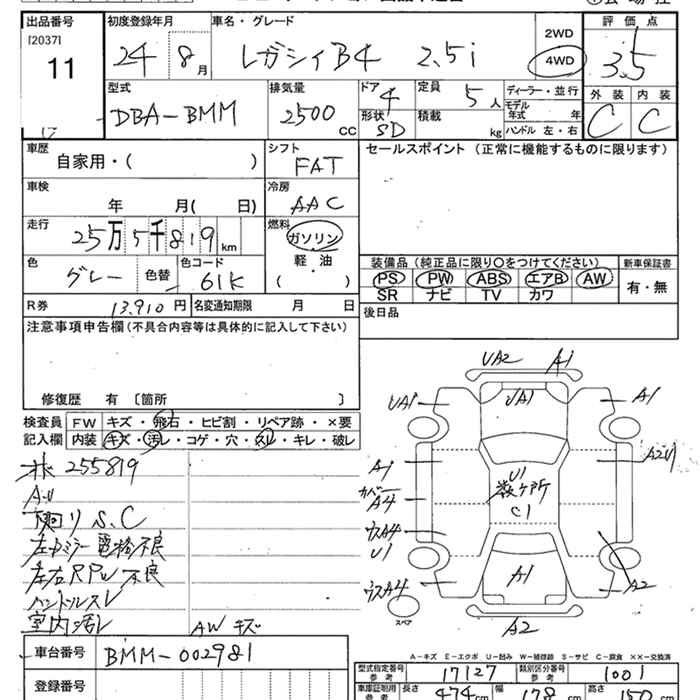 出品番号 初度登録年月 車名・グレード 評価点
[2037]
11 24 8月 レガシィB4 2.5i 2WD 4WD 3.5
外装 内装
C C
型式 DBA-BMM 排気量 2500 CC ドア 4 形状 SD 定員 5人 積載 kg
ディーラー・並行
モデル年式 年
ハンドル 左・右
車歴 自家用・( ) シフト FAT セールスポイント (正常に機能するものに限ります)
車検 年 月( 日) 冷房 AAC
走行 25万5千819km 燃料 ガソリン 軽油 ( )
色 グレー 色替 色コード 61K
装備品 (純正品に限り○をつけてください) 新車保証書
PS PW ABS エアB AW 有・無
SR ナビ TV カワ
R券 13,910円 名変通知期限 月 日 後日品
注意事項申告欄(不具合内容等は具体的に記入して下さい)
修復歴 有 〔箇所 〕
検査員 FW キズ・飛石・ヒビ割・リペア跡・×要
記入欄 内装 キズ・汚レ・コゲ・穴・スレ・キレ・破レ
255819
A・U
下回リ S.C
左ドアミラー電格不良
左右RPW不良
ハンドルスレ
室内汚レ AWキズ
UA2 A1
UA1 UA1 A1
A1 A2U1
カバー A4 U1 数ヶ所 C1
ウスA4
U1
ウスA4 A1 A2
スペア A2
A-キズ E-エクボ U-凹み W-補修跡 S-サビ C-腐食 XX-交換済
車台番号 BMM-002981
登録番号
型式指定番号 参考 17127 類別区分番号 参考 1001
車庫証明用 参考 長さ 474cm 幅 178cm 高さ 150cm